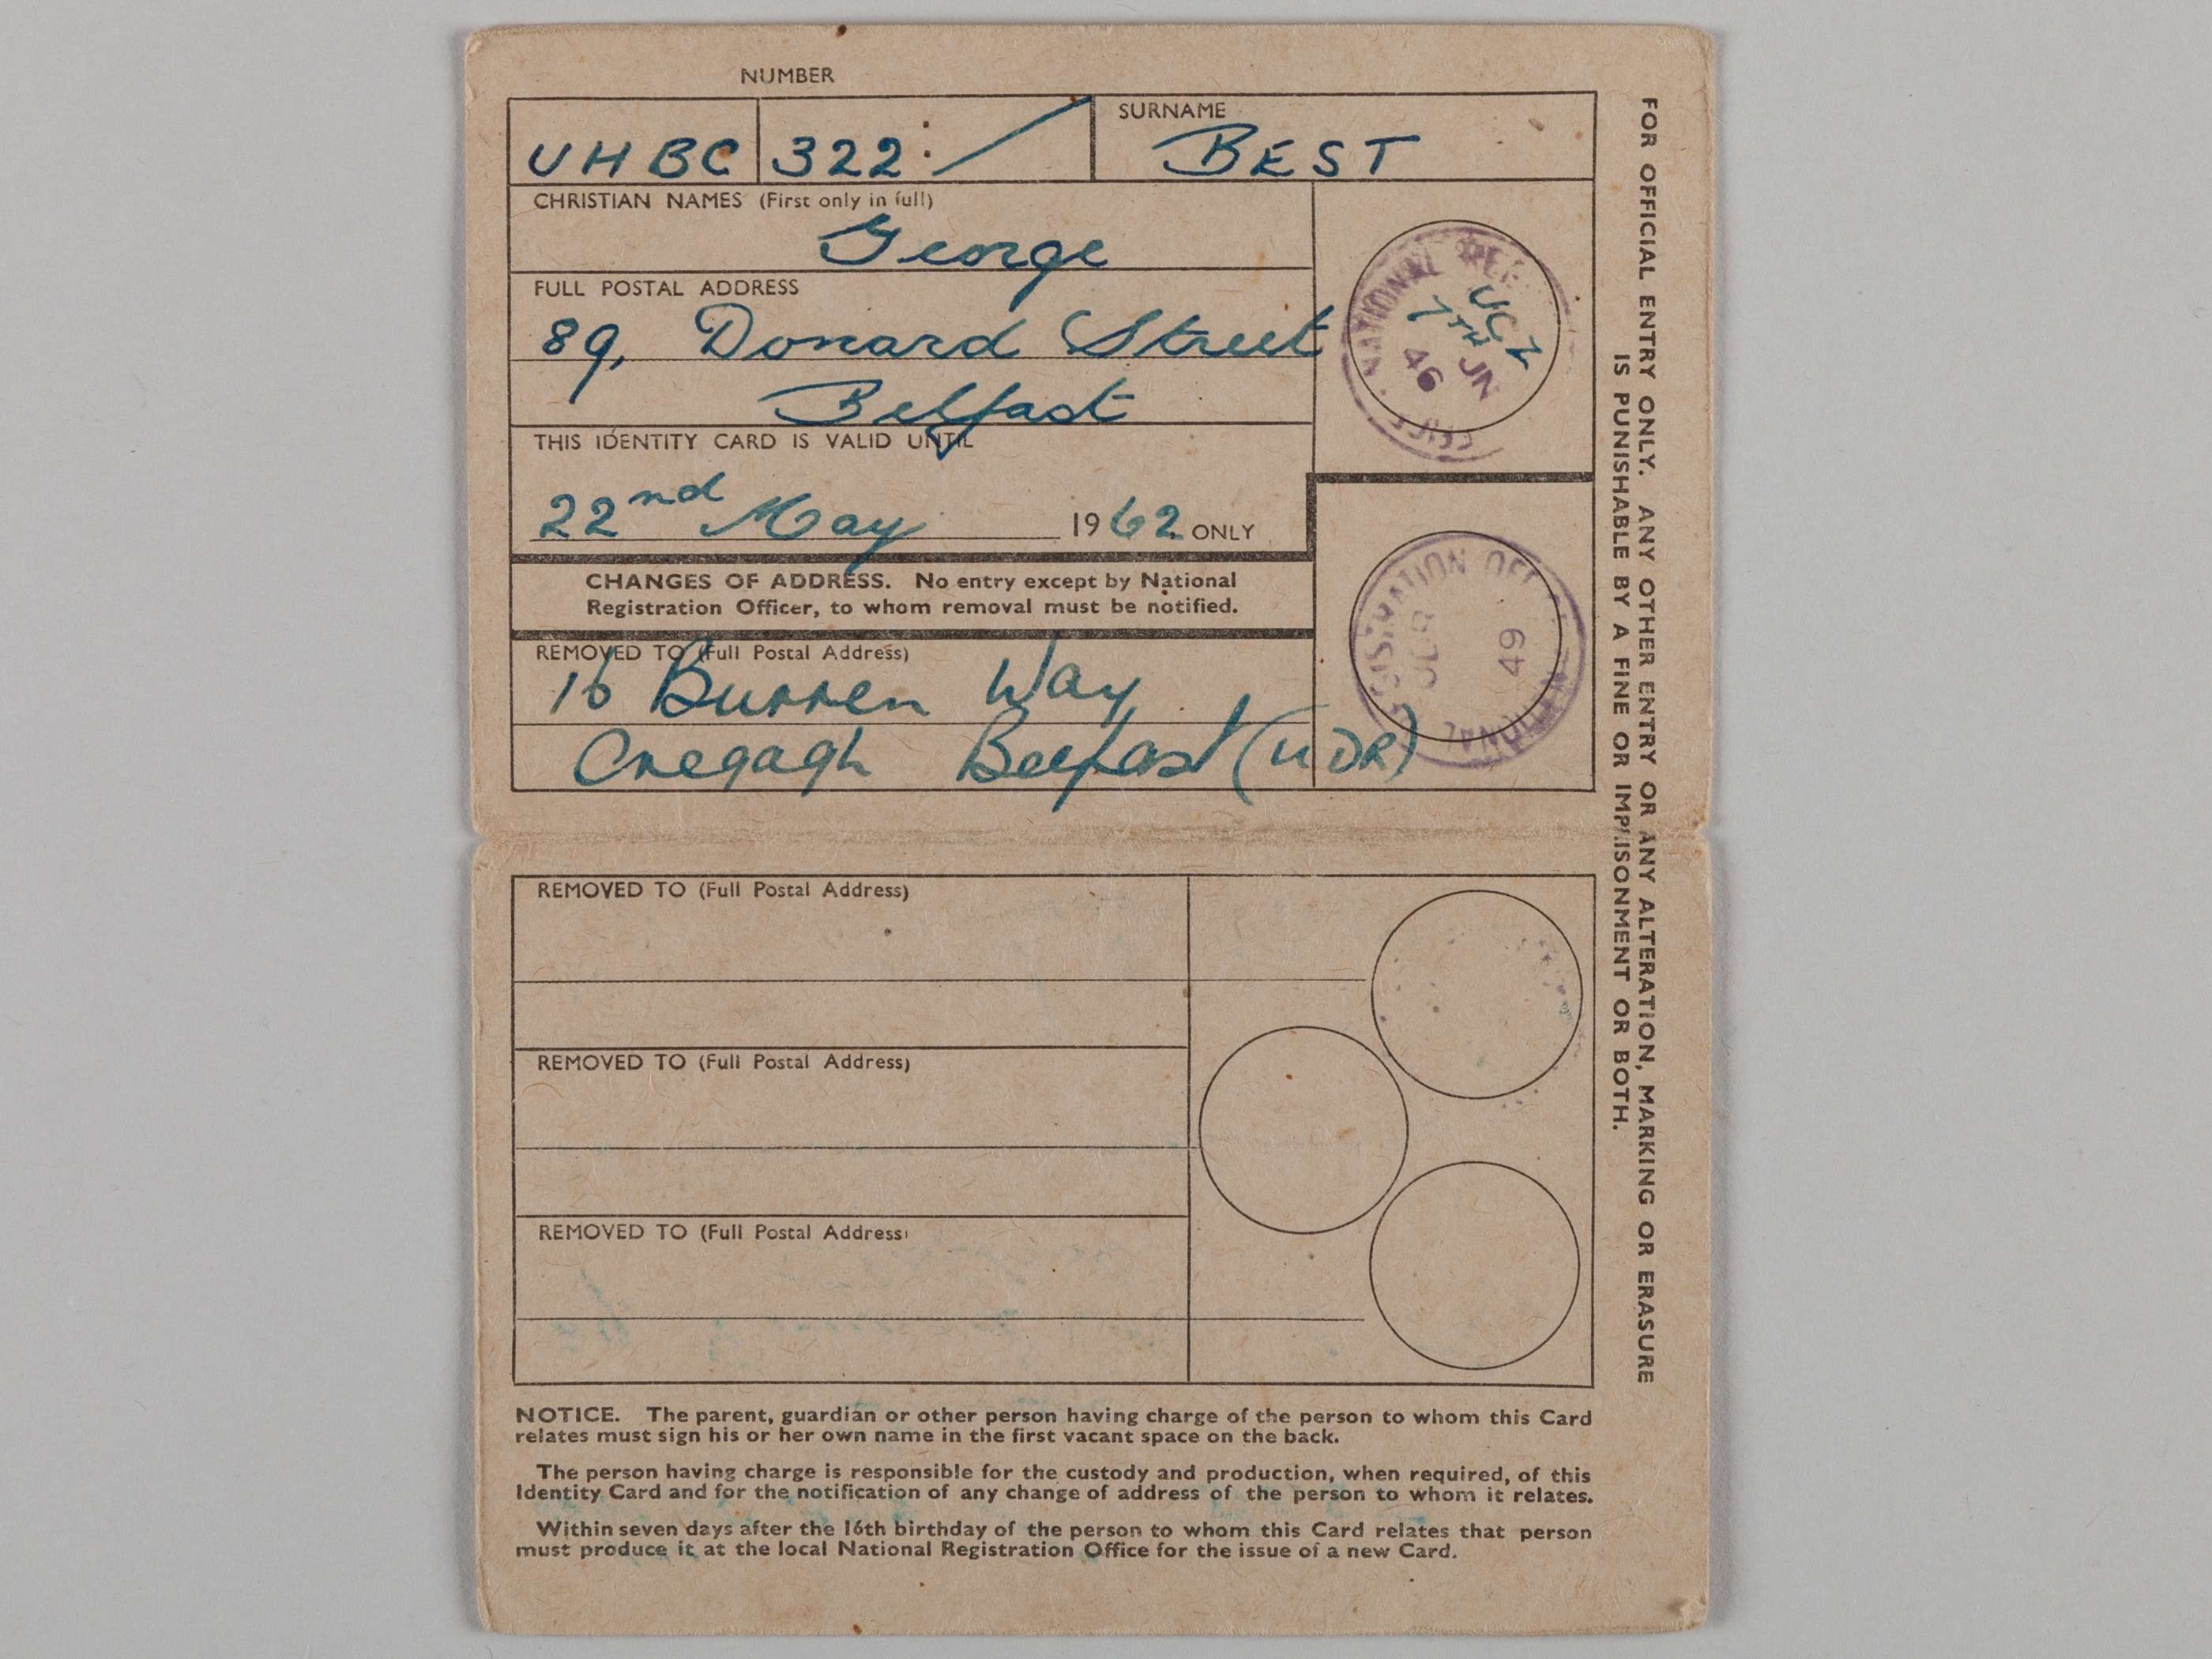 NUMBER
UHBC 322: /
SURNAME
BEST
CHRISTIAN NAMES (First only in full)
George
FULL POSTAL ADDRESS
89, Donard Street
Belfast
THIS IDENTITY CARD IS VALID UNTIL
22nd May 1962 ONLY
NATIONAL
UCZ
7TH JN
46
CHANGES OF ADDRESS. No entry except by National
Registration Officer, to whom removal must be notified.
REMOVED TO (Full Postal Address)
16 Burren Way
Cregagh Belfast (UDR)
NATIONAL REGISTRATION OFF
49
REMOVED TO (Full Postal Address)
REMOVED TO (Full Postal Address)
REMOVED TO (Full Postal Address)
NOTICE. The parent, guardian or other person having charge of the person to whom this Card
relates must sign his or her own name in the first vacant space on the back.
The person having charge is responsible for the custody and production, when required, of this
Identity Card and for the notification of any change of address of the person to whom it relates.
Within seven days after the 16th birthday of the person to whom this Card relates that person
must produce it at the local National Registration Office for the issue of a new Card.
FOR OFFICIAL ENTRY ONLY. ANY OTHER ENTRY OR ANY ALTERATION, MARKING OR ERASURE
IS PUNISHABLE BY A FINE OR IMPRISONMENT OR BOTH.